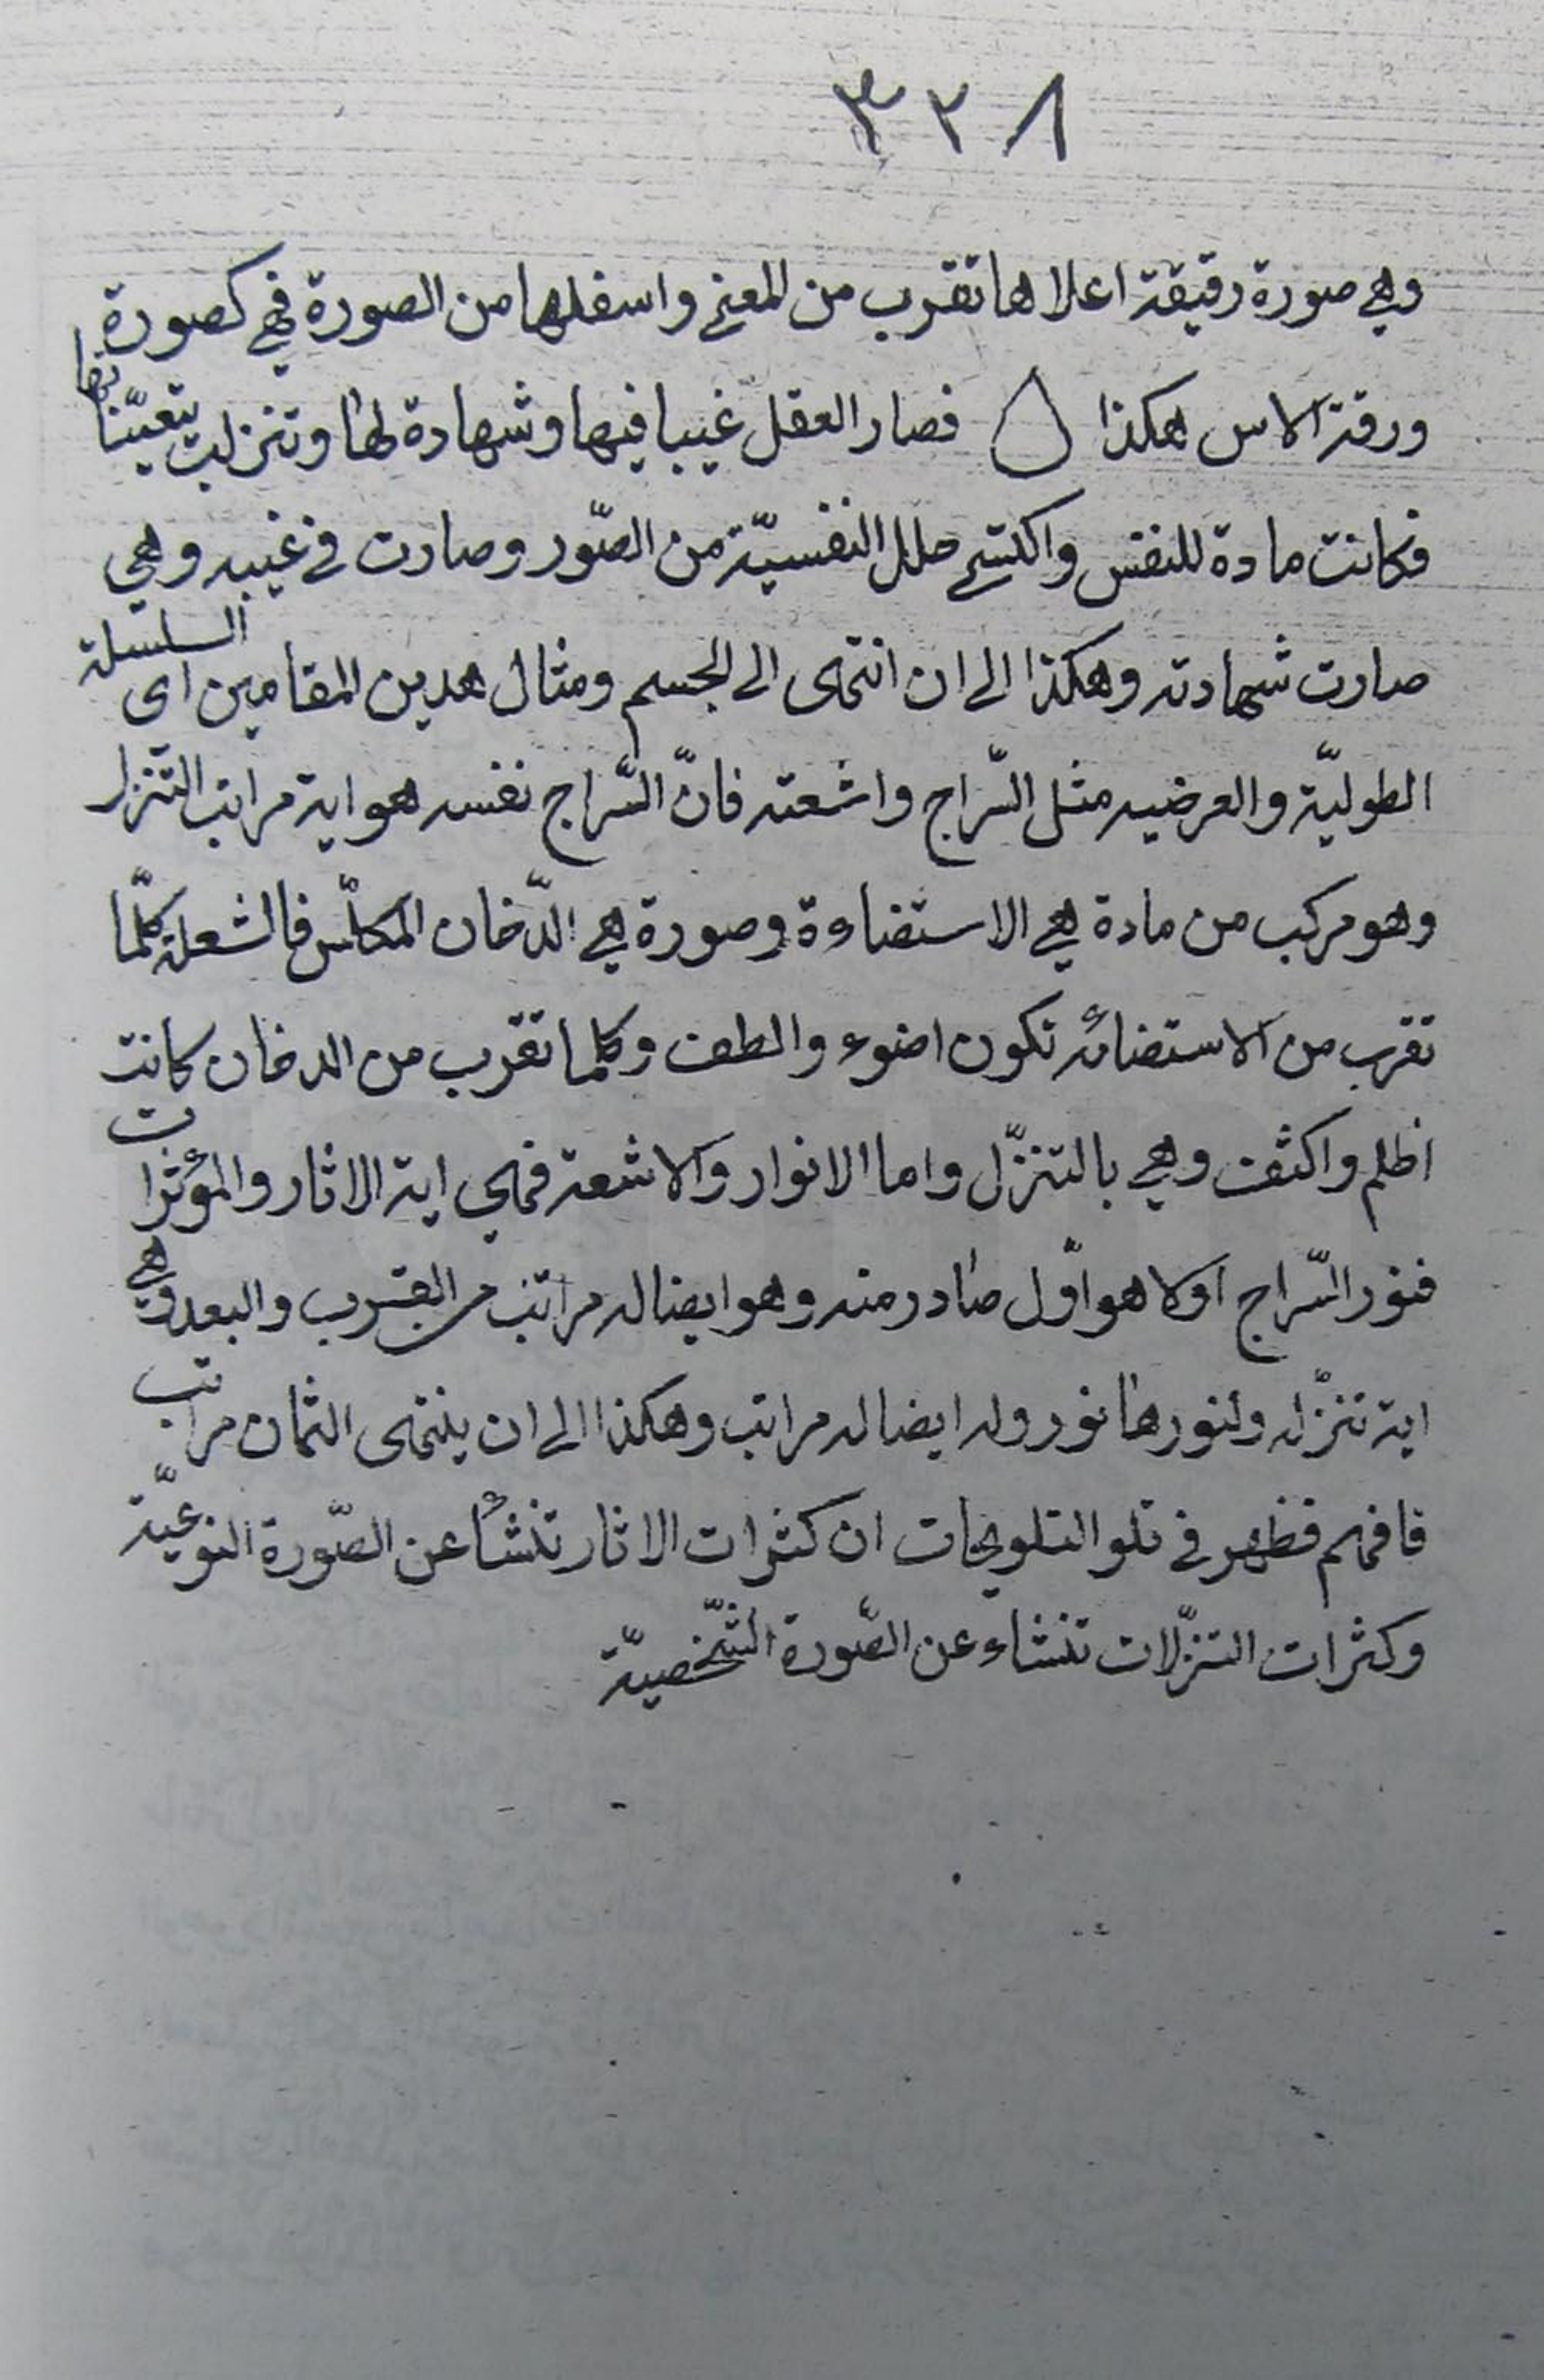 ٣٢٨
وهي صورة رقيقة اعلاها تقرب من المعنى واسفلها من الصورة فهي كصورة
ورقة الاس هكذا فصار العقل غيبا فيها وشهادة لها وتنزلت بتعيّناتها
فكانت مادة للنفس واكتسى حلل النفسيّة من الصّور وصارت في غيبه وهي
صارت شهادته وهكذا الى ان انتهى الى الجسم ومثال هذين المقامين اى السلسلة
الطوليّة والعرضيه مثل السّراج واشعته فانّ السّراج نفسه هو اية مراتب التنزل
وهو مركب من مادة هي الاستضاءة وصورة هي الدّخان المكلّس فالشعلة كلّما
تقرب من الاستضائه تكون اضوء والطف وكلما تقرب من الدخان كانت
اظلم واكثف وهي بالتنزّل واما الانوار والاشعة فهي اية الاثار والمؤثرات
فنور السّراج اولا هو اوّل صادر منه وهو ايضا له مراتب من القرب والبعد وهي
اية تنزّله ولنورها نور وله ايضا له مراتب وهكذا الى ان ينتهى الثمان مراتب
فافهم فظهر في تلو التلويحات ان كثرات الاثار تنشأ عن الصّورة النوعيّة
وكثرات التنزّلات تنشاء عن الصّورة الشّخصيّة